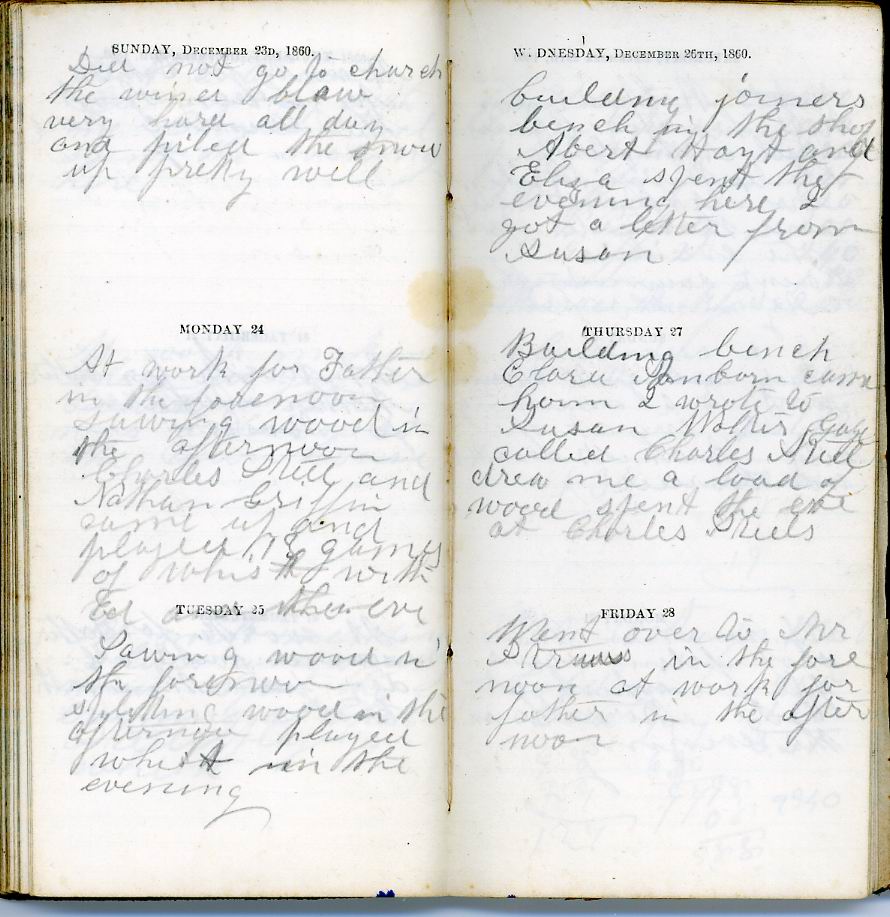 SUNDAY, DECEMBER 23D, 1860.
Did not go to church
the winer blaw
very hard all day
and piled the snow
up pretty well
MONDAY 24
At work for Father
in the forenoon
sawing wood in
the afternoon
Charles Still and
Nathan Griffin
came up and
played 18 games
of whist with
Ed the eve
TUESDAY 25
Sawing wood in
the forenoon
splitting wood in the
afternoon played
whist in the
evening
W. DNESDAY, DECEMBER 26TH, 1860.
building joiners
bench in the shop
Abert Hoyt and
Eliza spent the
evening here I
got a letter from
Susan
THURSDAY 27
Building bench
Clara Sanborn came
home I wrote to
Susan Walter Gay
called Charles Still
drew me a load of
wood spent the eve
at Charles Stills
FRIDAY 28
Went over to Mr
in the fore
noon at work for
father in the after
noon